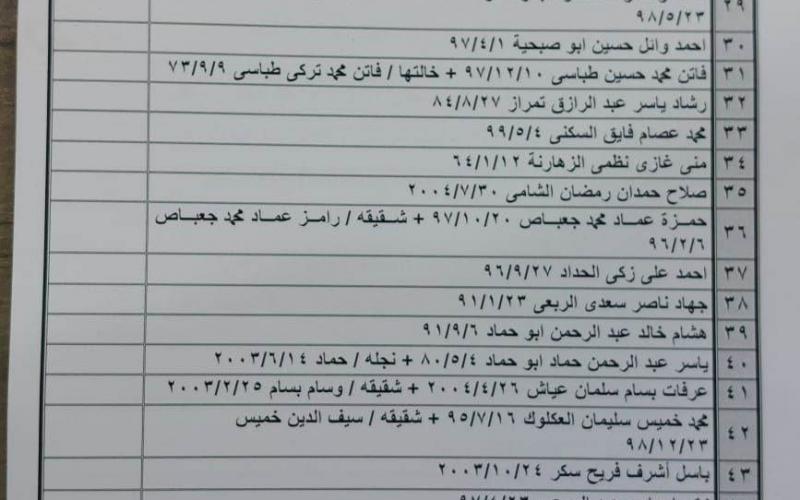 ٢٩
٩٨/٥/٢٣
٣٠ احمد وائل حسين ابو صبحية ٩٧/٤/١
٣١ فاتن محمد حسين طباسى ٩٧/١٢/١٠ + خالتها / فاتن محمد تركى طباسى ٧٣/٩/٩
٣٢ رشاد ياسر عبد الرازق تمراز ٨٤/٨/٢٧
٣٣ محمد عصام فايق السكنى ٩٩/٥/٤
٣٤ منى غازى نظمى الزهارنة ٦٤/١/١٢
٣٥ صلاح حمدان رمضان الشامى ٢٠٠٤/٧/٣٠
٣٦ حمزة عماد محمد جعباص ٩٧/١٠/٢٠ + شقيقه / رامز عماد محمد جعباص
٩٦/٢/٦
٣٧ احمد على زكى الحداد ٩٦/٩/٢٧
٣٨ جهاد ناصر سعدى الربعى ٩١/١/٢٣
٣٩ هشام خالد عبد الرحمن ابو حماد ٩١/٩/٦
٤٠ ياسر عبد الرحمن حماد ابو حماد ٨٠/٥/٤ + نجله / حماد ٢٠٠٣/٦/١٤
٤١ عرفات بسام سلمان عياش ٢٠٠٤/٤/٢٦ + شقيقه / وسام بسام ٢٠٠٣/٢/٢٥
٤٢ محمد خميس سليمان العكلوك ٩٥/٧/١٦ + شقيقه / سيف الدين خميس
٩٨/١٢/٢٣
٤٣ باسل أشرف فريح سكر ٢٠٠٣/١٠/٢٤